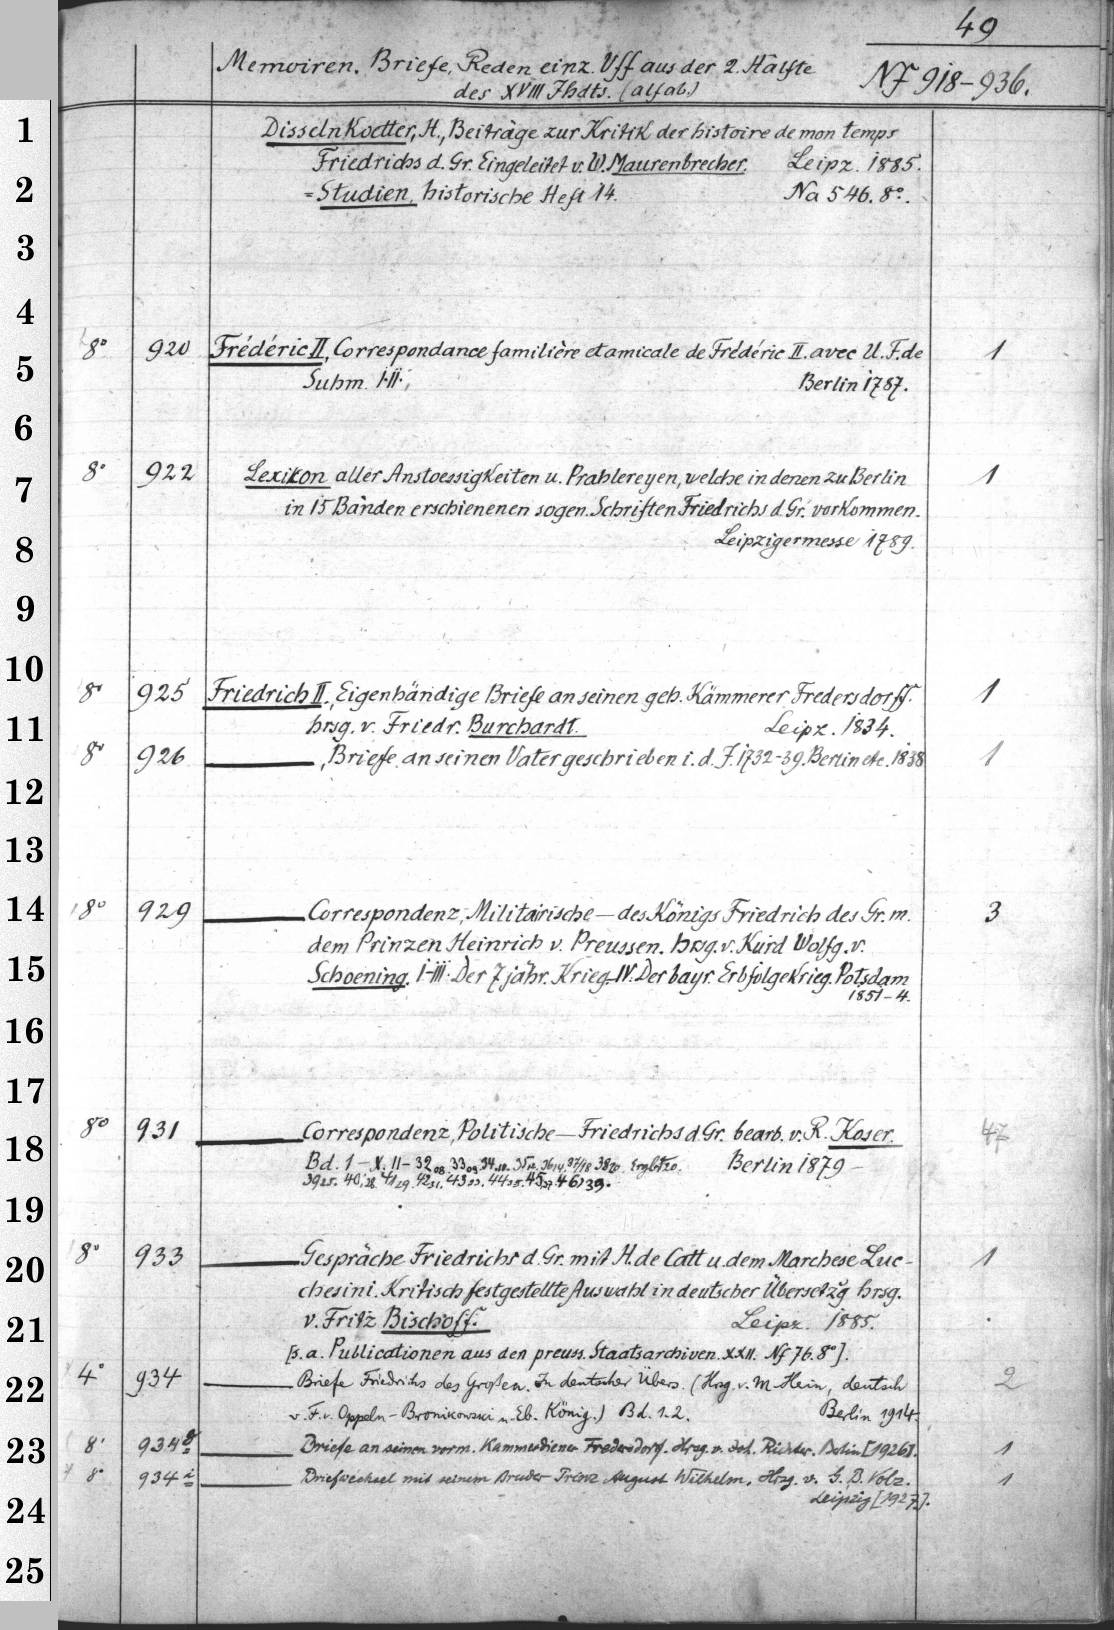 49
Memoiren. Briefe, Reden einz. Vff aus der 2. Hälfte
des XVIII Jhdts. (alfab.)
Nf 918-936.
1
Disselnkoetter, H., Beiträge zur Kritik der histoire de mon temps
Friedrichs d. Gr. Eingeleitet v. W. Maurenbrecher. Leipz. 1885.
2
= Studien, historische Heft 14. Na 546. 8°.
3
4
8° 920 Frédéric II, Correspondance familière et amicale de Frédéric II. avec U. F. de 1
5
Suhm. I-II. Berlin 1787.
6
8° 922 Lexikon aller Anstoessigkeiten u. Prahlereyen, welche in denen zu Berlin 1
7
in 15 Bänden erschienenen sogen. Schriften Friedrichs d. Gr. vorkommen.
8
Leipzigermesse 1789.
9
10
8° 925 Friedrich II., Eigenhändige Briefe an seinen geh. Kämmerer Fredersdorff. 1
11
hrsg. v. Friedr. Burchardt. Leipz. 1834.
8° 926 ——, Briefe an seinen Vater geschrieben i. d. J. 1732-39. Berlin etc. 1838 1
12
13
14
8° 929 —— Correspondenz, Militärische — des Königs Friedrich des Gr. m. 3
dem Prinzen Heinrich v. Preussen. hrsg. v. Kurd Wolfg. v.
15
Schoening. I-III. Der 7jähr. Krieg. IV. Der bayr. Erbfolgekrieg. Potsdam
1851-4.
16
17
8° 931 —— Correspondenz, Politische — Friedrichs d. Gr. bearb. v. R. Koser. 47
18
Bd. 1 - X. 11 - 32 08. 33 09. 34 10. 35 12. 36 14. 37/18 38 20. Berlin 1879 -
39 25. 40, 28. 41 29. 42 31. 43 33. 44 35. 45 37. 46, 39.
19
8° 933 —— Gespräche Friedrichs d. Gr. mit H. de Catt u. dem Marchese Luc- 1
20
chesini. Kritisch festgestellte Auswahl in deutscher Übersetzg hrsg.
21
v. Fritz Bischoff. Leipz. 1885.
[s. a. Publicationen aus den preuss. Staatsarchiven. XXII. Nf 76. 8°].
4° 934 —— Briefe Friedrichs des Großen. In deutscher Übers. (Hrsg. v. M. Hein, deutsch 2
22
v. F. v. Oppeln-Bronikowski u. Eb. König.) Bd. 1. 2. Berlin 1914.
23
8° 934 g —— Briefe an seinen vorm. Kammerdiener Fredersdorf. Hrsg. v. Joh. Richter. Berlin [1926]. 1
8° 934 i —— Briefwechsel mit seinem Bruder Prinz August Wilhelm. Hrsg. v. G. B. Volz. 1
24
Leipzig [1927].
25